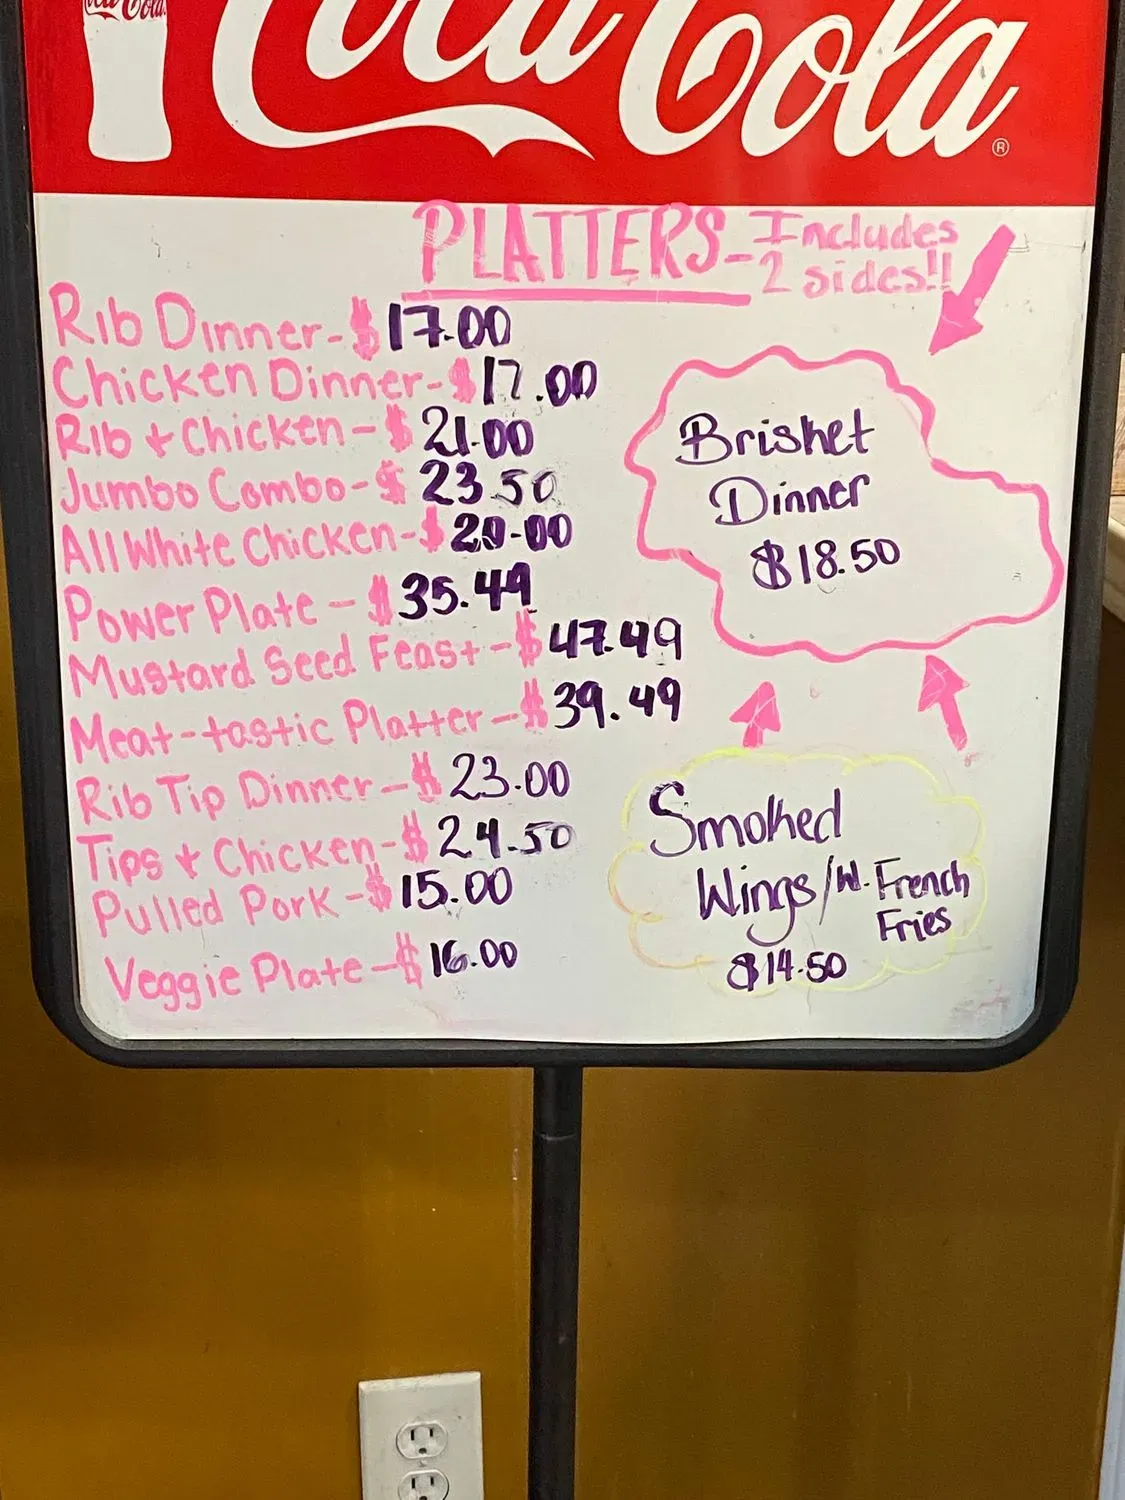 Coca-Cola
Coca-Cola®
PLATTERS- Includes
2 sides!!
Rib Dinner-$17.00
Chicken Dinner-$17.00
Rib & Chicken-$21.00
Jumbo Combo-$23.50
All White Chicken-$20.00
Power Plate-$35.49
Mustard Seed Feast-$47.49
Meat-tastic Platter-$39.49
Rib Tip Dinner-$23.00
Tips & Chicken-$24.50
Pulled Pork-$15.00
Veggie Plate-$16.00
Brisket
Dinner
$18.50
Smoked
Wings/W. French
Fries
$14.50